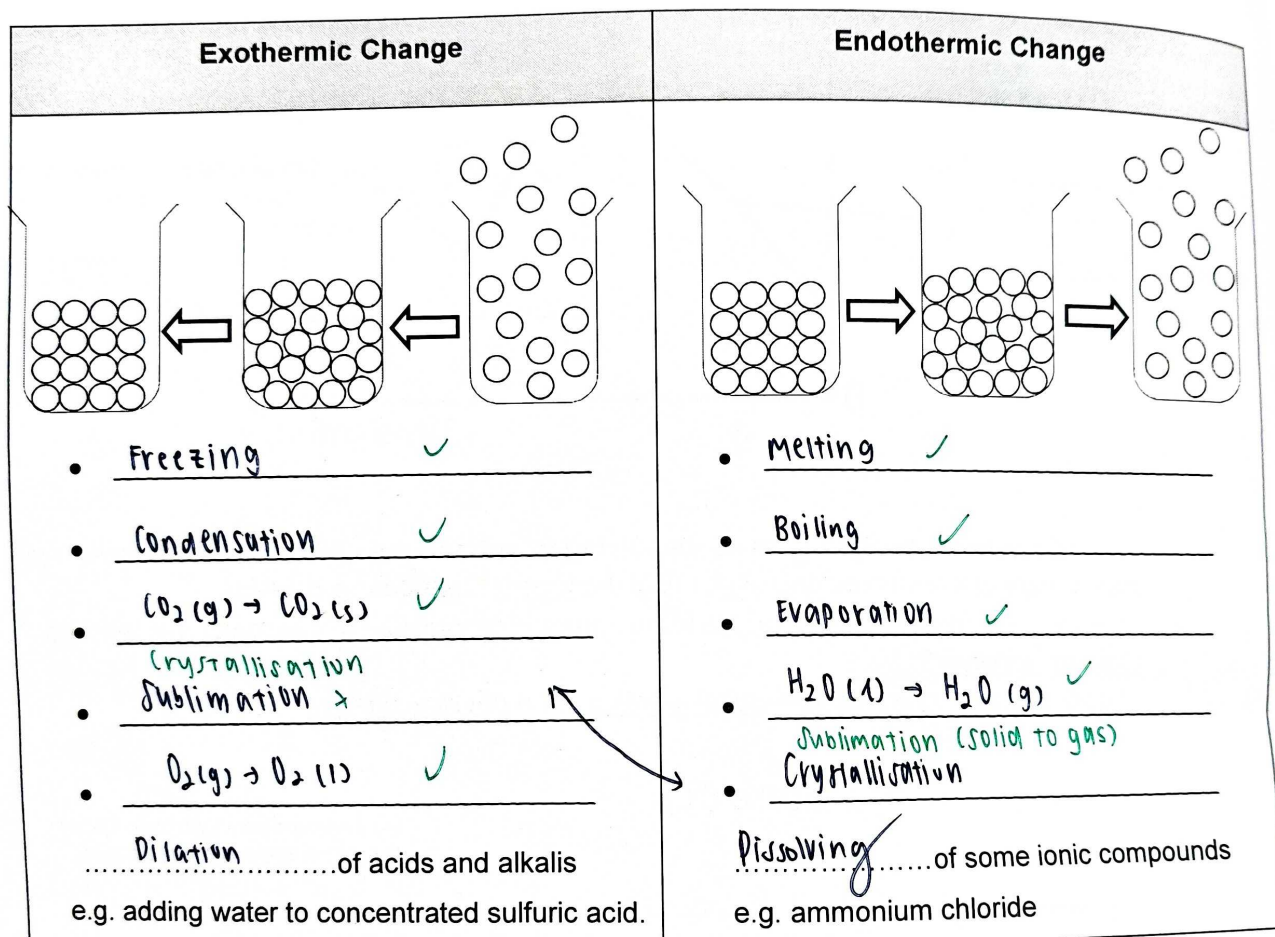 Exothermic Change
Freezing ✓
Condensation ✓
CO₂ (g) → CO₂ (s) ✓
Crystallisation
Sublimation ×
O₂ (g) → O₂ (l) ✓
Dilation of acids and alkalis
e.g. adding water to concentrated sulfuric acid.
Endothermic Change
Melting ✓
Boiling ✓
Evaporation ✓
H₂O (l) → H₂O (g) ✓
Sublimation (solid to gas)
Crystallisation
Dissolving of some ionic compounds
e.g. ammonium chloride